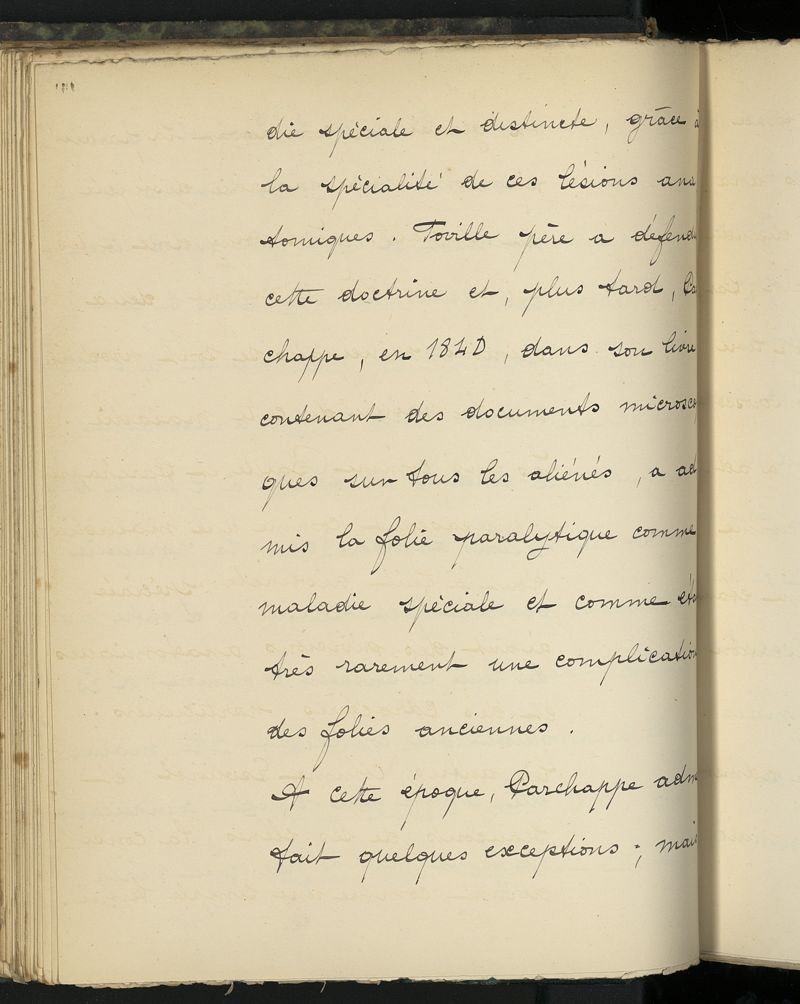 die spéciale et distincte, grâce à
la spécialité de ces lésions ana
tomiques. Foville père a défend
cette doctrine et, plus tard, Pa
chappe, en 1840, dans son livre
contenant des documents microsco
ques sur tous les aliénés, a ad
mis la folie paralytique comme
maladie spéciale et comme éta
très rarement une complication
des folies anciennes.
A cette époque, Parchappe adm
tait quelques exceptions; mais